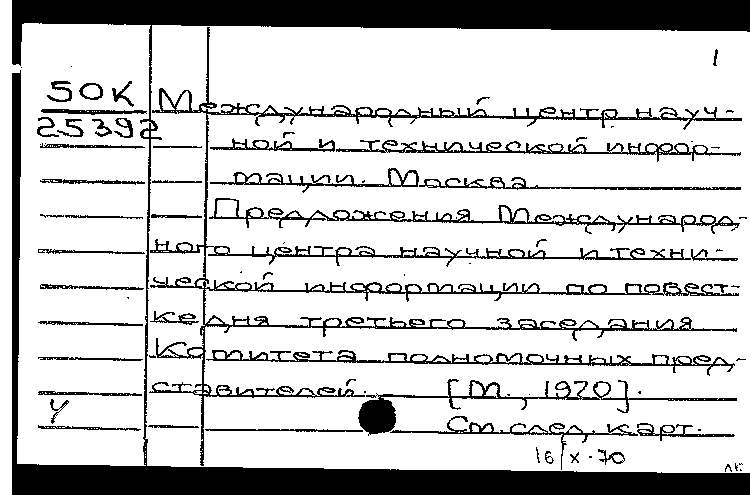 1
50К
25392
Международный центр науч-
ной и технической инфор-
мации. Москва.
Предложения Международ-
ного центра научной и техни-
ческой информации по повест-
ке дня третьего заседания
Комитета полномочных пред-
ставителей. [М., 1970].
У
См. след. карт.
16/X-70